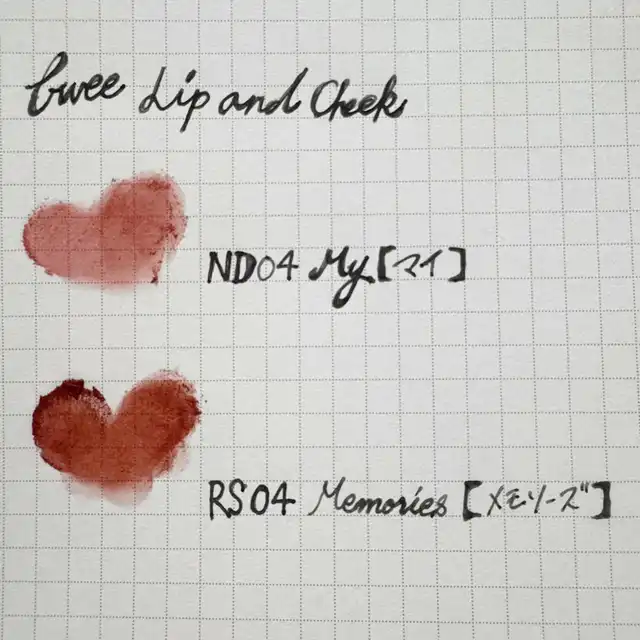 fwee Lip and Cheek
ND04 My【マイ】
RS04 Memories【メモリーズ】